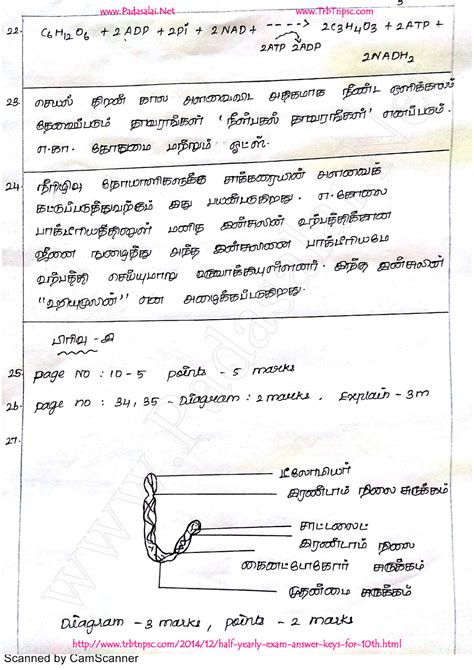 www.Padasalai.Net www.TrbTnpsc.com
5
22. C6H12O6 + 2ADP + 2Pi + 2NAD+ ----> 2C3H4O3 + 2ATP +
2ATP 2ADP
2NADH2
23. செயல் திறன் கால அளவைவிட அதிகமாக நீண்ட ஒளிக்காலம்
தேவைப்படும் தாவரங்கள் 'நீள்பகல் தாவரங்கள்' எனப்படும்.
எ.கா. கோதுமை மற்றும் ஓட்ஸ்.
24. நீரிழிவு நோயாளிகளுக்கு சர்க்கரையின் அளவைக்
கட்டுப்படுத்துவதற்கும் இது பயன்படுகிறது. எ.கோலை
பாக்டீரியத்தினுள் மனித இன்சுலின் உற்பத்திக்கான
ஜீனை நுழைத்து அந்த இன்சுலினை பாக்டீரியமே
உற்பத்தி செய்யுமாறு உருவாக்கியுள்ளனர். இந்த இன்சுலின்
"ஹியுமுலின்" என அழைக்கப்படுகிறது.
பிரிவு - இ
25. page NO : 10-5 points - 5 marks
26. page no : 34, 35 - Diagram : 2 marks. Explain - 3m
27.
டீலோமியர்
இரண்டாம் நிலை சுருக்கம்
சாட்டலைட்
இரண்டாம் நிலை
சுருக்கம்
முதன்மை சுருக்கம்
Diagram - 3 marks, points - 2 marks
http://www.trbtnpsc.com/2014/12/half-yearly-exam-answer-keys-for-10th.html
Scanned by CamScanner
www.Padasalai